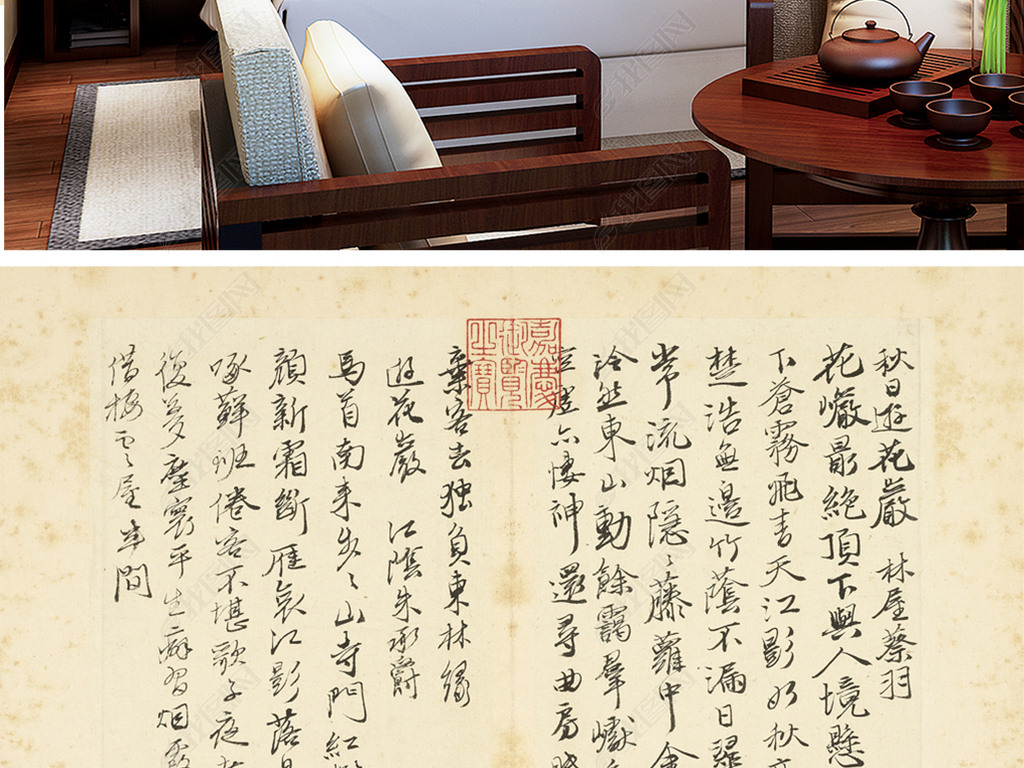 秋日遊花巖 林屋蔡羽
花巘最絶頂下與人境懸
下蒼霧飛青天江影如秋
楚浩無邊竹蔭不漏日
常流烟隠〻藤蘿中金
泠然東山動餘靄羣巘
亦悽神還尋曲房
棄客去独負東林緣
遊花巖 江陰朱承爵
馬首南来步〻山寺門紅
顔新霜斷雁哀江影落
啄蘚班倦客不堪歌子夜
復夢塵寰平生癖習烟霞
借梅雪屋半間
嘉慶御覽之寶